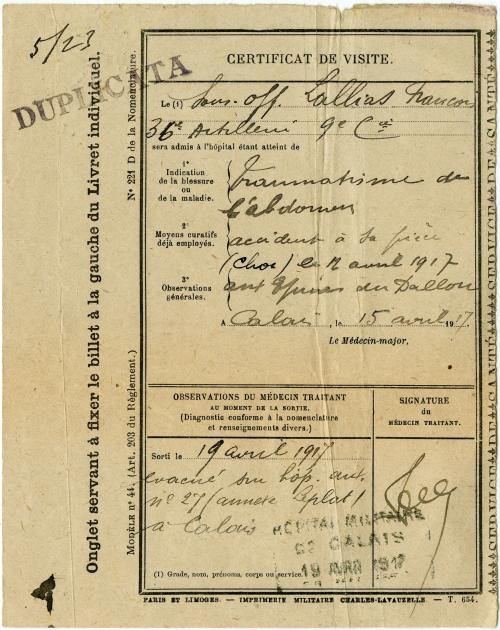 5/23
DUPLICATA
Onglet servant à fixer le billet à la gauche du Livret individuel.
N° 221 D de la Nomenclature.
MODÈLE N° 44. (Art. 203 du Règlement.)
CERTIFICAT DE VISITE.
Le (1) Sous-off. Lallias François
36e Artillerie 9e Cie
sera admis à l'hôpital étant atteint de
1°
Indication
de la blessure
ou
de la maladie.
Traumatisme de
l'abdomen
2°
Moyens curatifs
déjà employés.
accident à sa pièce
(choc) le 12 avril 1917
3°
Observations
générales.
aux du Dallon
A Calais, le 15 avril 1917
Le Médecin-major,
OBSERVATIONS DU MÉDECIN TRAITANT
AU MOMENT DE LA SORTIE.
(Diagnostic conforme à la nomenclature
et renseignements divers.)
SIGNATURE
du
MÉDECIN TRAITANT.
Sorti le 19 avril 1917
evacué sur hop. aux.
n° 27 (annexe
à Calais
HÔPITAL MILITAIRE
DE CALAIS
19 AVRI 1917
(1) Grade, nom, prénoms, corps ou service.
PARIS ET LIMOGES. — IMPRIMERIE MILITAIRE CHARLES-LAVAUZELLE. — T. 654.
SERVICE DE SANTÉ